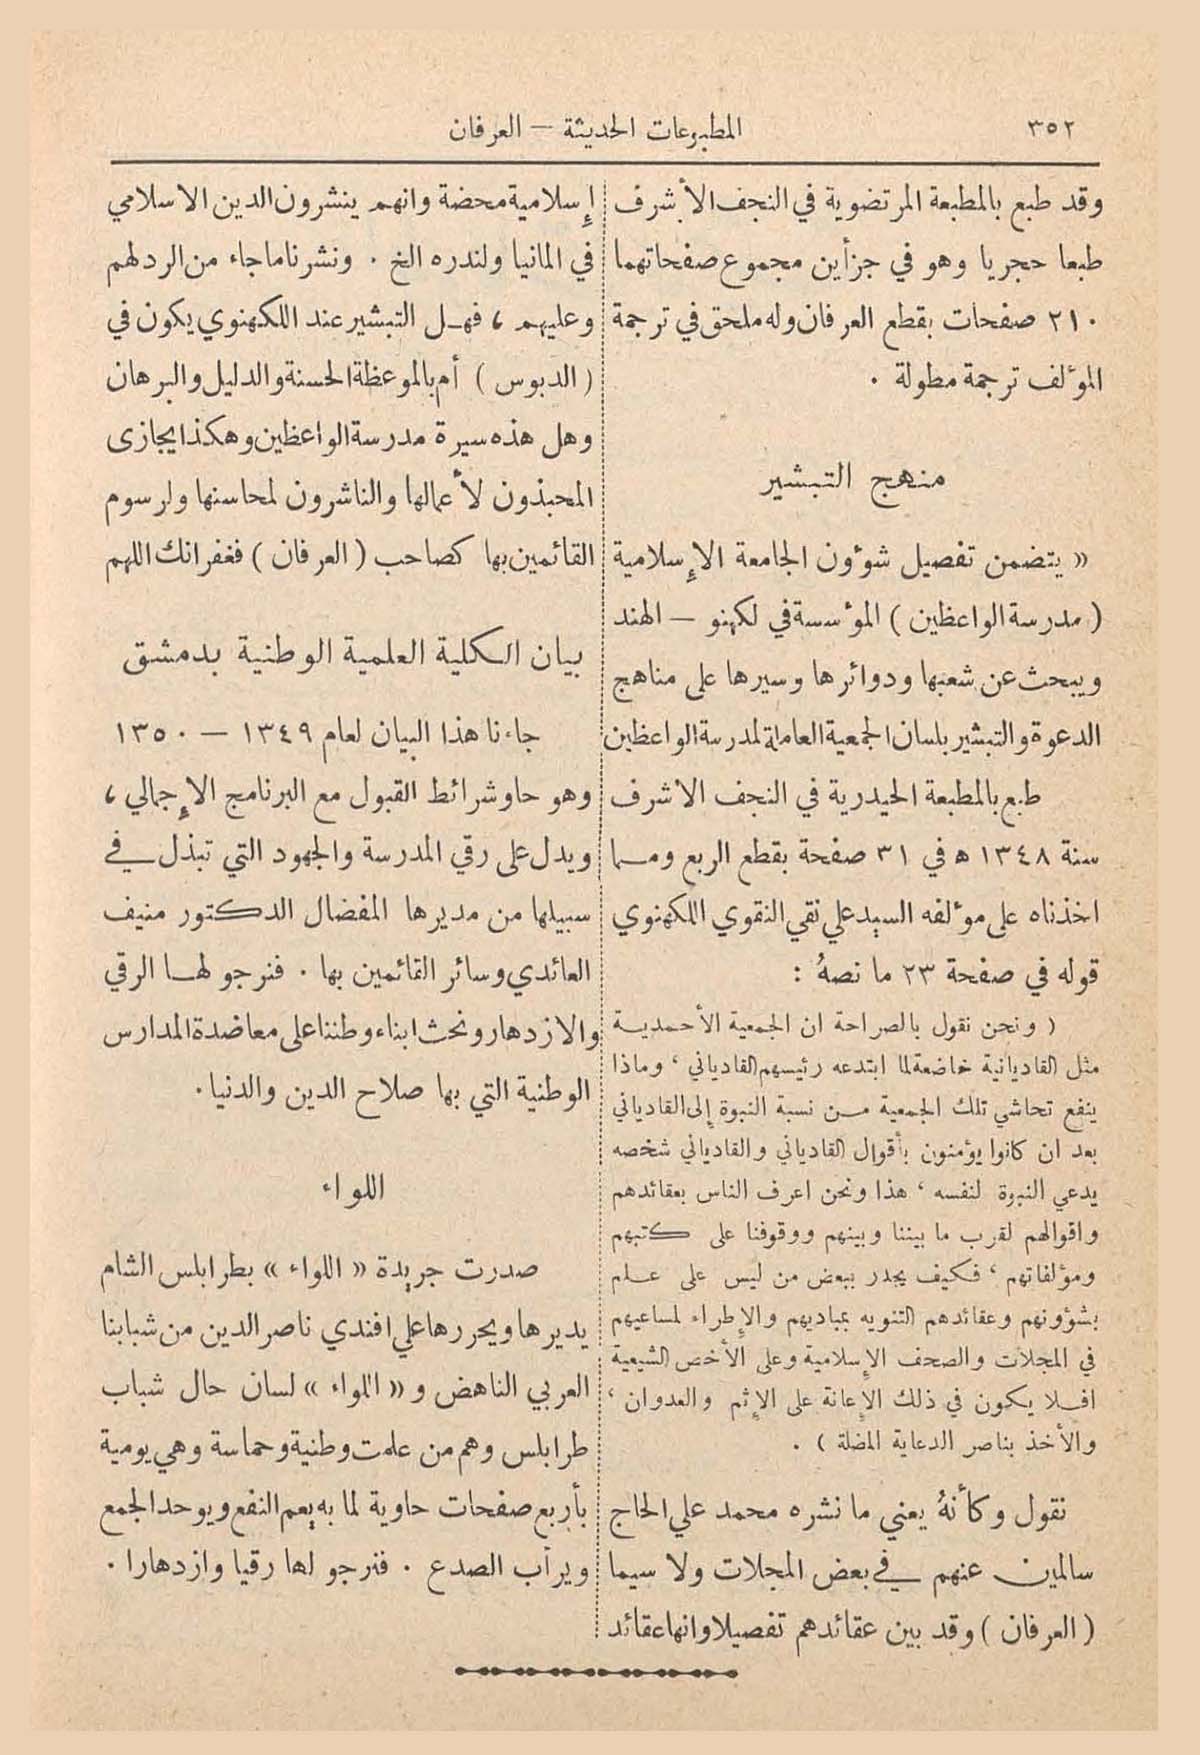 ٣٥٢
المطبوعات الحديثة – العرفان
وقد طبع بالمطبعة المرتضوية في النجف الأشرف
طبعا حجريا وهو في جزأين مجموع صفحاتهما
٢١٠ صفحات بقطع العرفان وله ملحق في ترجمة
المؤلف ترجمة مطولة ٠
منهج التبشير
« يتضمن تفصيل شؤون الجامعة الإسلامية
( مدرسة الواعظين ) المؤسسة في لكهنو – الهند
ويبحث عن شعبها ودوائرها وسيرها على مناهج
الدعوة والتبشير بلسان الجمعية العاملة لمدرسة الواعظين
طبع بالمطبعة الحيدرية في النجف الاشرف
سنة ١٣٤٨ ه في ٣١ صفحة بقطع الربع ومما
اخذناه على مؤلفه السيد علي نقي النقوي اللكهنوي
قوله في صفحة ٢٣ ما نصهُ :
( ونحن نقول بالصراحة ان الجمعية الأحمدية
مثل القاديانية خاضعة لما ابتدعه رئيسهم القادياني ، وماذا
ينفع تحاشي تلك الجمعية من نسبة النبوة إلى القادياني
بعد ان كانوا يؤمنون بأقوال القادياني والقادياني شخصه
يدعي النبوة لنفسه ، هذا ونحن اعرف الناس بعقائدهم
واقوالهم لقرب ما بيننا وبينهم ووقوفنا على كتبهم
ومؤلفاتهم ، فكيف يجدر ببعض من ليس على علم
بشؤونهم وعقائدهم التنويه بمباديهم والإطراء لمساعيهم
في المجلات والصحف الإسلامية وعلى الأخص الشيعية
افلا يكون في ذلك الإعانة على الإثم والعدوان ،
والأخذ بناصر الدعاية المضلة ) ٠
نقول وكأنهُ يعني ما نشره محمد علي الحاج
سالمين عنهم في بعض المجلات ولا سيما
( العرفان ) وقد بين عقائدهم تفصيلا وانها عقائد
إسلامية محضة وانهم ينشرون الدين الاسلامي
في المانيا ولندره الخ ٠ ونشرنا ما جاء من الرد لهم
وعليهم ، فهل التبشير عند اللكهنوي يكون في
( الدبوس ) أم بالموعظة الحسنة والدليل والبرهان
وهل هذه سيرة مدرسة الواعظين وهكذا يجازى
المحبذون لأعمالها والناشرون لمحاسنها ولرسوم
القائمين بها كصاحب ( العرفان ) فغفرانك اللهم
بيان الكلية العلمية الوطنية بدمشق
جاءنا هذا البيان لعام ١٣٤٩ – ١٣٥٠
وهو حاو شرائط القبول مع البرنامج الإجمالي ،
ويدل على رقي المدرسة والجهود التي تبذل في
سبيلها من مديرها المفضال الدكتور منيف
العائدي وسائر القائمين بها ٠ فنرجو لها الرقي
والازدهار ونحث ابناء وطننا على معاضدة المدارس
الوطنية التي بها صلاح الدين والدنيا ٠
اللواء
صدرت جريدة « اللواء » بطرابلس الشام
يديرها ويحررها علي افندي ناصر الدين من شبابنا
العربي الناهض و « اللواء » لسان حال شباب
طرابلس وهم من علمت وطنية وحماسة وهي يومية
بأربع صفحات حاوية لما به يعم النفع ويوحد الجمع
ويرأب الصدع ٠ فنرجو لها رقيا وازدهارا ٠